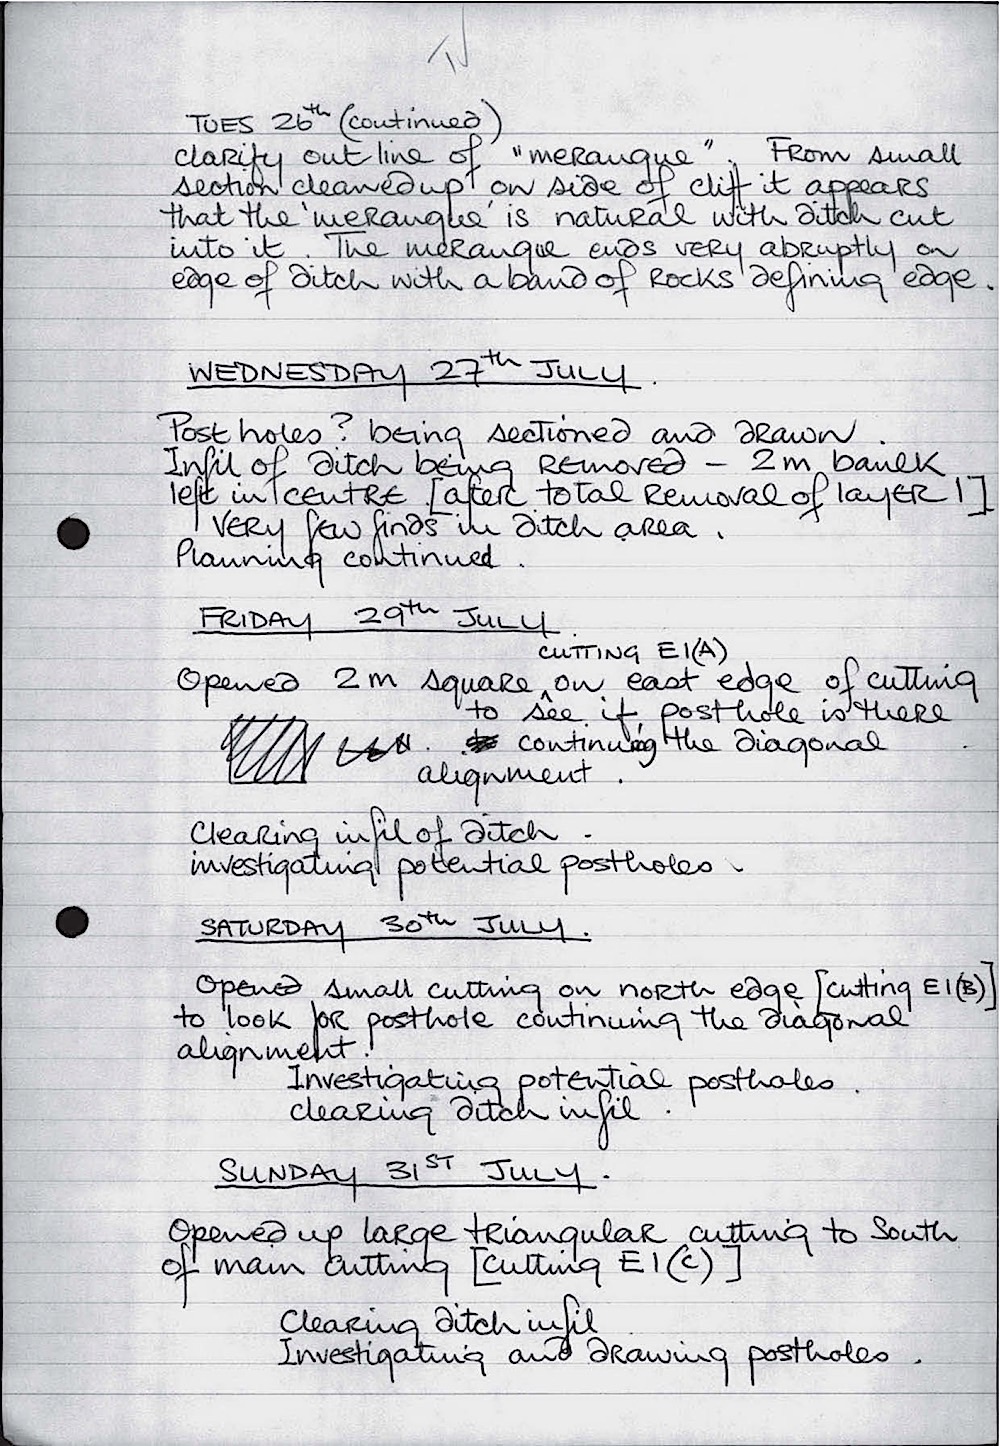 IV
TUES 26th (continued)
clarify outline of "merangue". From small
section cleaned up on side of cliff it appears
that the 'merangue' is natural with ditch cut
into it. The merangue ends very abruptly on
edge of ditch with a band of rocks defining edge.
WEDNESDAY 27th JULY.
Post holes? being sectioned and drawn.
Infil of ditch being removed – 2m baulk
left in centre [after total removal of layer 1]
Very few finds in ditch area.
Planning continued.
FRIDAY 29th JULY.
CUTTING E1(A)
Opened 2m square ^ on east edge of cutting
to see if posthole is there
continuing the diagonal
alignment.
Clearing infil of ditch.
investigating potential postholes.
SATURDAY 30th JULY.
Opened small cutting on north edge [cutting E1(B)]
to look for posthole continuing the diagonal
alignment.
Investigating potential postholes.
clearing ditch infil.
SUNDAY 31ST JULY.
Opened up large triangular cutting to South
of main cutting [Cutting E1(C)]
Clearing ditch infil
Investigating and drawing postholes.